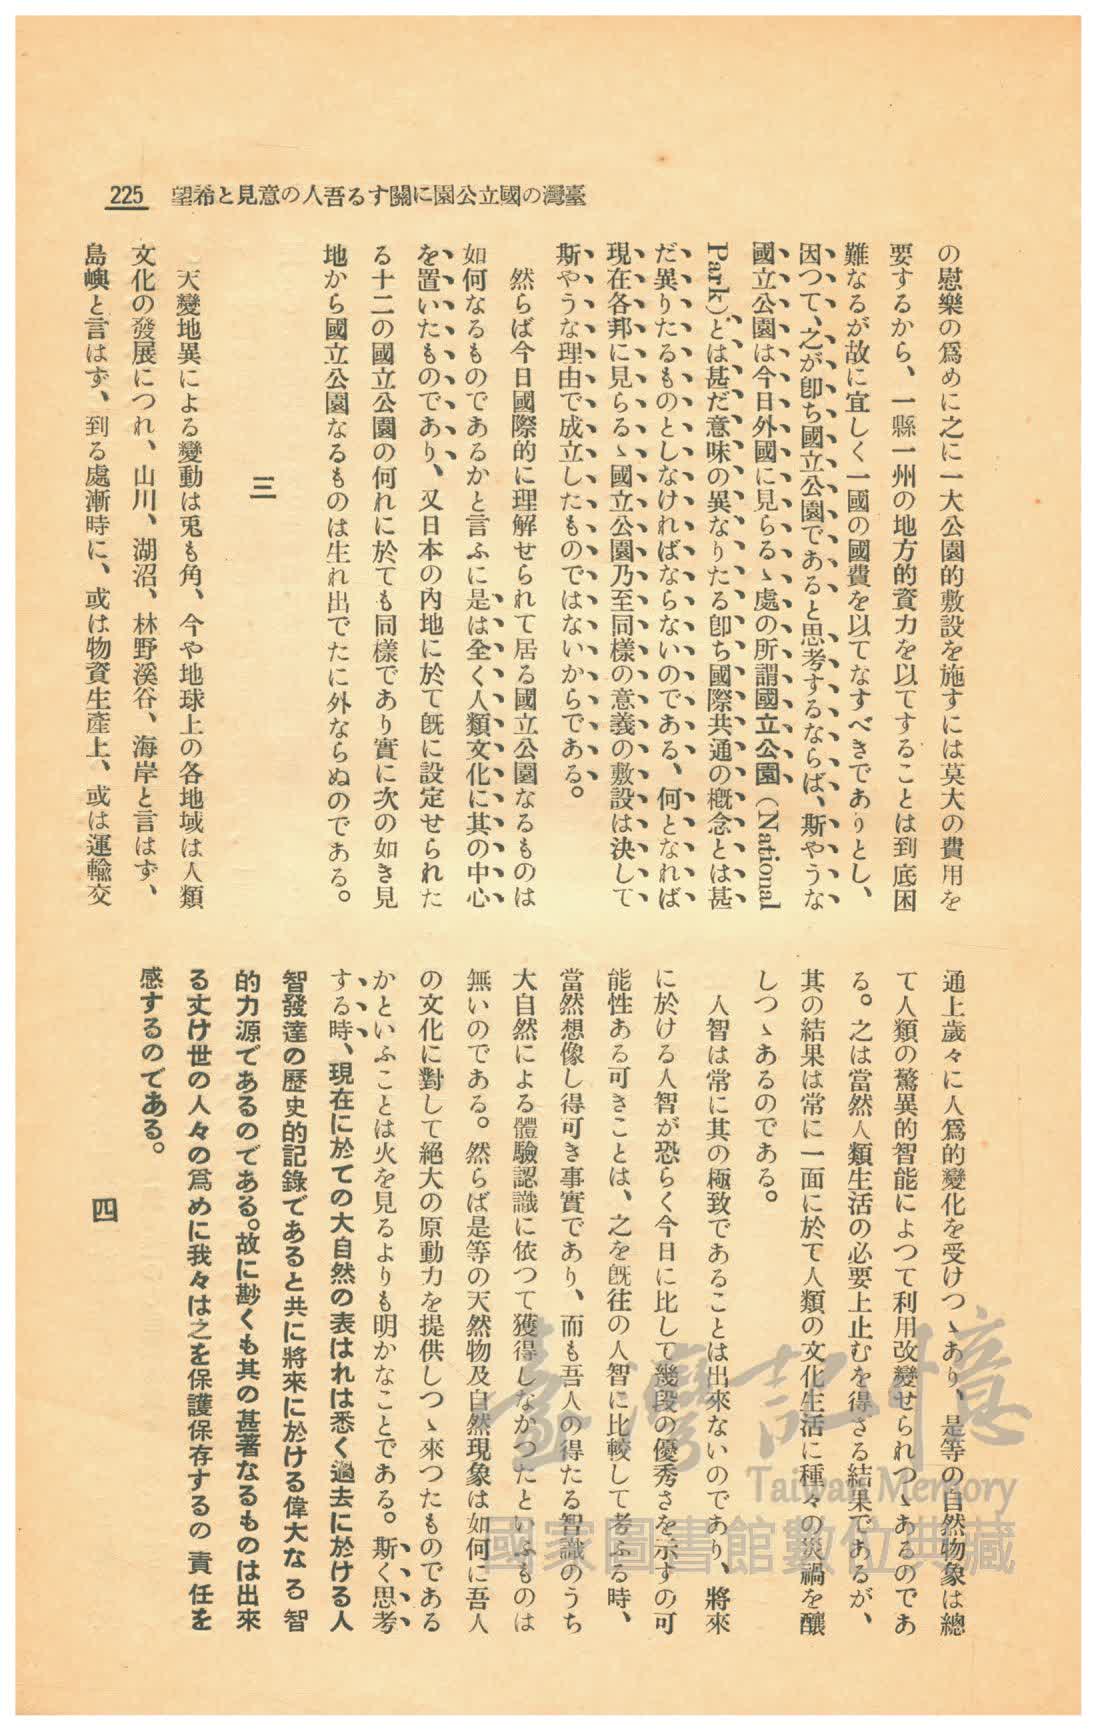 臺灣の國立公園に關する吾人の意見と希望
225
の慰樂の爲めに之に一大公園的敷設を施すには莫大の費用を
要するから、一縣一州の地方的資力を以てすることは到底困
難なるが故に宜しく一國の國費を以てなすべきでありとし、
因つて、之が卽ち國立公園であると思考するならば、斯やうな
國立公園は今日外國に見らるゝ處の所謂國立公園（National
Park）とは甚だ意味の異なりたる卽ち國際共通の槪念とは甚
だ異りたるものとしなければならないのである、何となれば
現在各邦に見らるゝ國立公園乃至同樣の意義の敷設は決して
斯やうな理由で成立したものではないからである。
然らば今日國際的に理解せられて居る國立公園なるものは
如何なるものであるかと言ふに是は全く人類文化に其の中心
を置いたものであり、又日本の內地に於て旣に設定せられた
る十二の國立公園の何れに於ても同樣であり實に次の如き見
地から國立公園なるものは生れ出でたに外ならぬのである。
三
天變地異による變動は兎も角、今や地球上の各地域は人類
文化の發展につれ、山川、湖沼、林野溪谷、海岸と言はず、
島嶼と言はず、到る處漸時に、或は物資生產上、或は運輸交
通上歲々に人爲的變化を受けつゝあり、是等の自然物象は總
て人類の驚異的智能によつて利用改變せられつゝあるのであ
る。之は當然人類生活の必要上止むを得さる結果であるが、
其の結果は常に一面に於て人類の文化生活に種々の災禍を釀
しつゝあるのである。
人智は常に其の極致であることは出來ないのであり、將來
に於ける人智が恐らく今日に比して幾段の優秀さを示すの可
能性ある可きことは、之を旣往の人智に比較して考ふる時、
當然想像し得可き事實であり、而も吾人の得たる智識のうち
大自然による體驗認識に依つて獲得しなかつたといふものは
無いのである。然らば是等の天然物及自然現象は如何に吾人
の文化に對して絕大の原動力を提供しつゝ來つたものである
かといふことは火を見るよりも明かなことである。斯く思考
する時、現在に於ての大自然の表はれは悉く過去に於ける人
智發達の歷史的記錄であると共に將來に於ける偉大なる智
的力源であるのである。故に尠くも其の甚著なるものは出來
る丈け世の人々の爲めに我々は之を保護保存するの責任を
感するのである。
四
臺灣記憶
Taiwan Memory
國家圖書館數位典藏